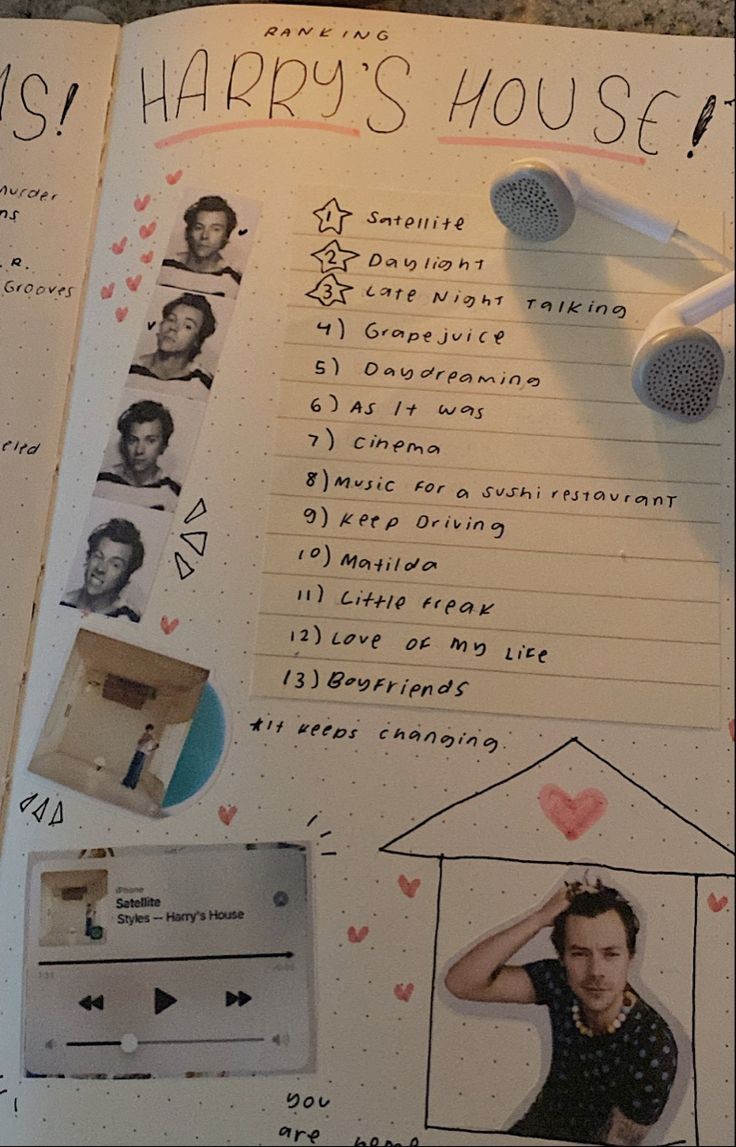 RANKING
HARRY'S HOUSE!
S!
murder
ns
R.
Grooves
eled
1 Satellite
2 Daylight
3 Late Night Talking
4) Grapejuice
5) Daydreaming
6) As It was
7) cinema
8) Music For a sushi restaurant
9) Keep Driving
10) Matilda
11) Little Freak
12) Love of My Life
13) Boyfriends
*it keeps changing.
iPhone
Satellite
Styles — Harry's House
you
are home